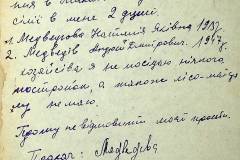 сімї в мене 2 душі.
1. Медведєва Наталія Яківна 19
2. Медведів Андрій Дмитрович. 1947
хозяйства я не посідаю ніякого
посторойок, а також лісо-май
му немаю.
Прошу не відмовити моєї прозьби.
Медведєва